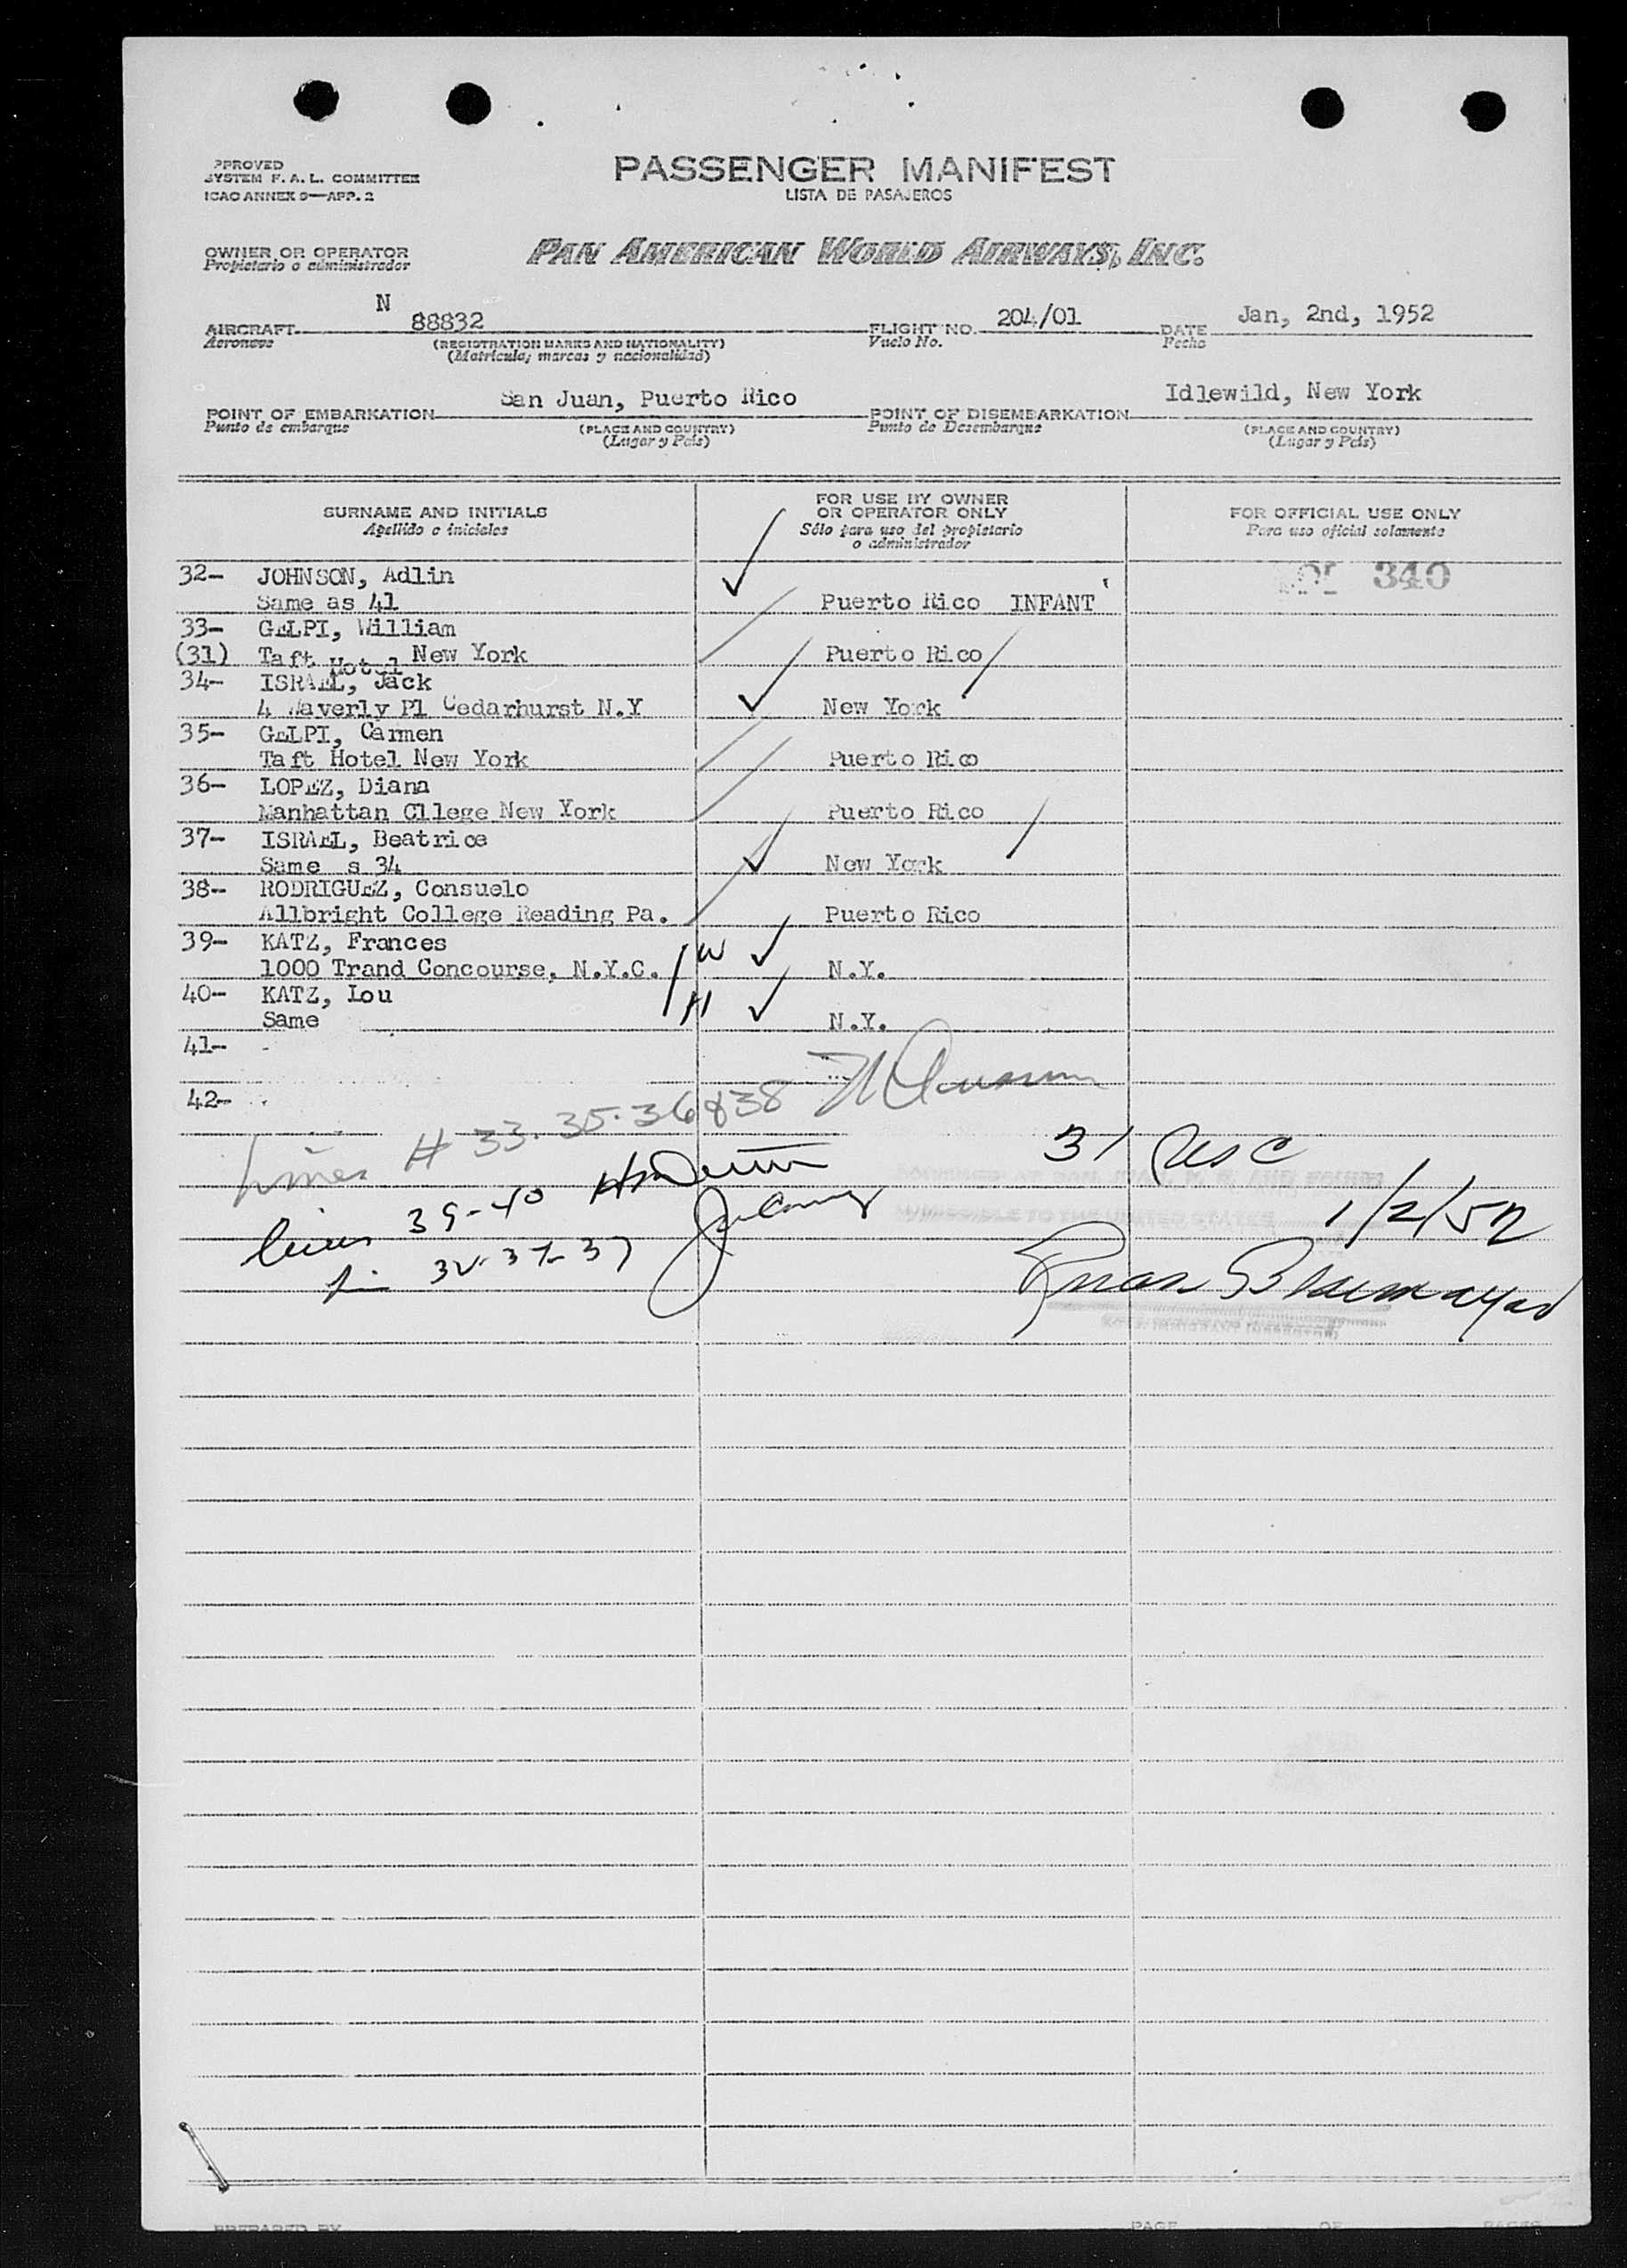 PPROVED
SYSTEM F. A. L. COMMITTEE
ICAO ANNEX 9—APP. 2
PASSENGER MANIFEST
LISTA DE PASAJEROS
OWNER OR OPERATOR
Propietario o administrador
PAN AMERICAN WORLD AIRWAYS, INC.
AIRCRAFT N 88832 FLIGHT NO. 204/01 DATE Jan, 2nd, 1952
Aeronave (REGISTRATION MARKS AND NATIONALITY) Vuelo No. Fecha
(Matricula, marcas y nacionalidad)
POINT OF EMBARKATION San Juan, Puerto Rico POINT OF DISEMBARKATION Idlewild, New York
Punto de embarque (PLACE AND COUNTRY) Punto de Desembarque (PLACE AND COUNTRY)
(Lugar y País) (Lugar y País)
SURNAME AND INITIALS
Apellido e iniciales
FOR USE BY OWNER
OR OPERATOR ONLY
Sólo para uso del propietario
o administrador
FOR OFFICIAL USE ONLY
Para uso oficial solamente
32- JOHNSON, Adlin 340
Same as 41 Puerto Rico INFANT
33- GELPI, William
(31) Taft Hotel New York Puerto Rico
34- ISRAEL, Jack
4 Waverly Pl Cedarhurst N.Y New York
35- GELPI, Carmen
Taft Hotel New York Puerto Rico
36- LOPEZ, Diana
Manhattan Cllege New York Puerto Rico
37- ISRAEL, Beatrice
Same s 34 New York
38- RODRIGUEZ, Consuelo
Allbright College Reading Pa. Puerto Rico
39- KATZ, Frances
1000 Trand Concourse, N.Y.C. W N.Y.
40- KATZ, Lou
Same H N.Y.
41-
42-
Lines # 33. 35. 36 & 38
31 USC
lines 39-40
1/2/52
PREPARED BY PAGE OF PAGES